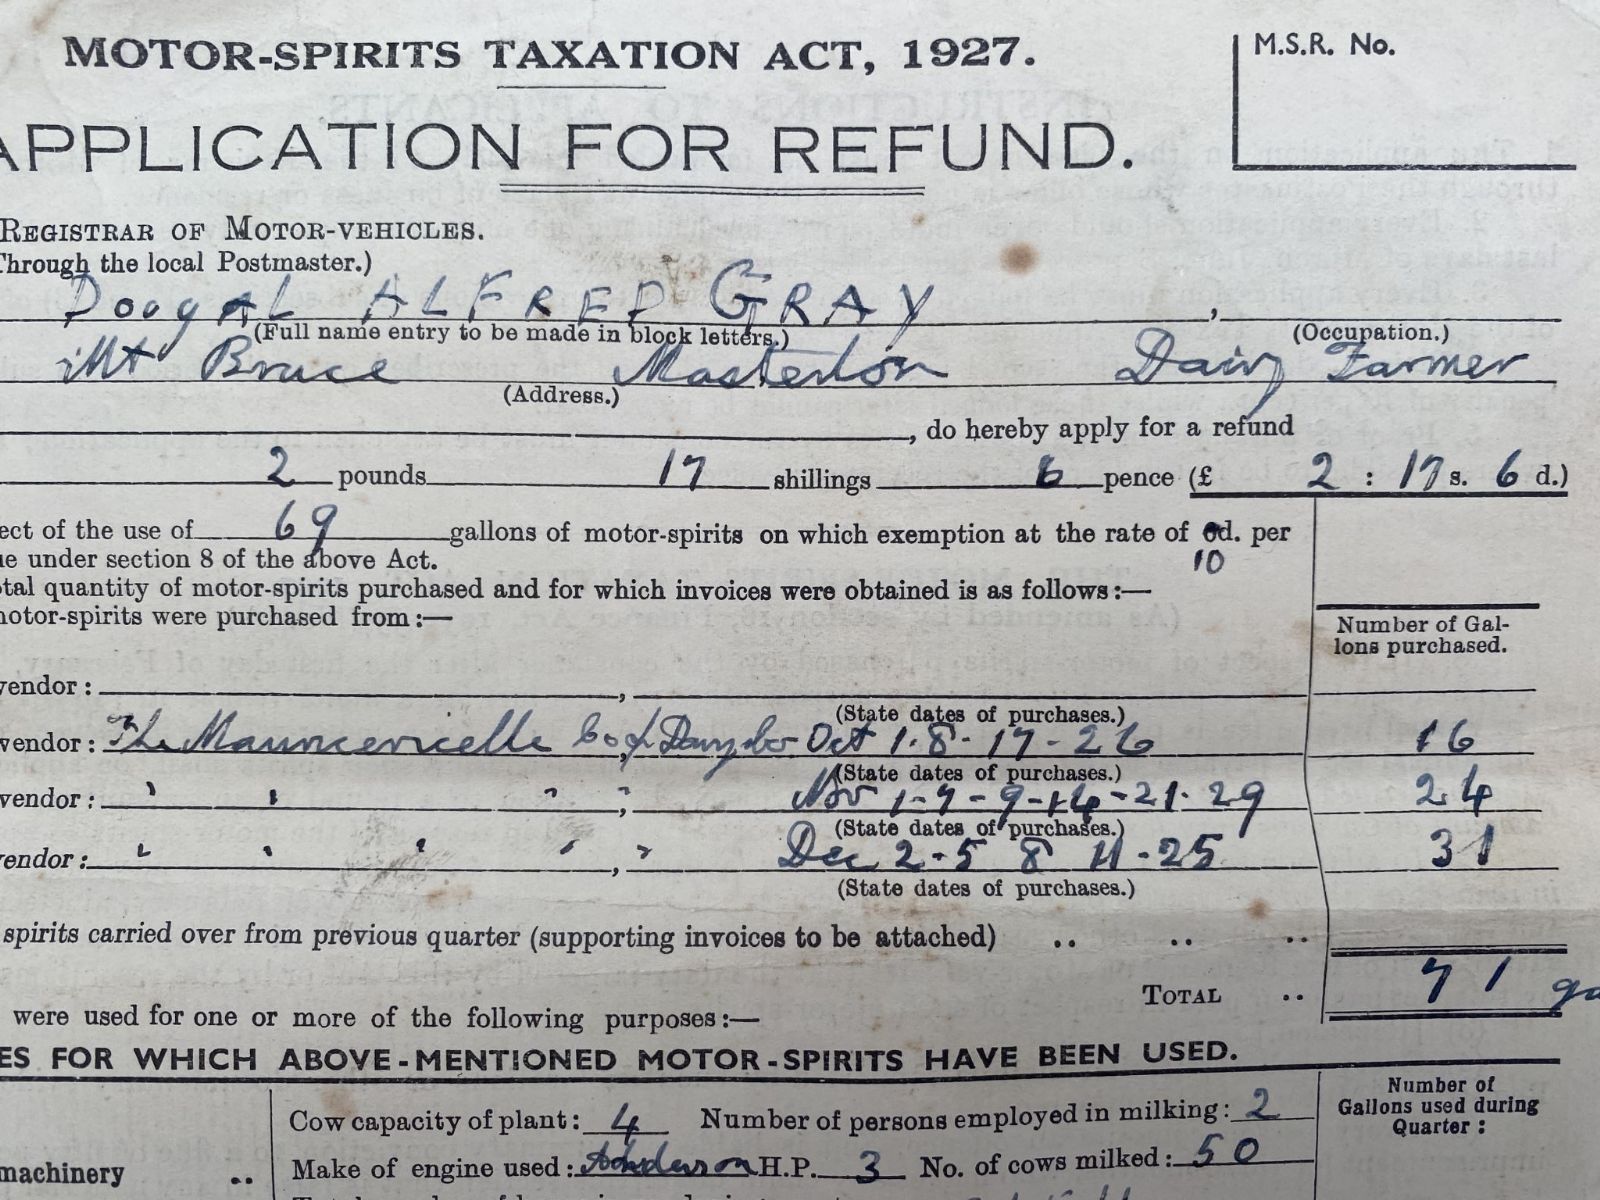 MOTOR-SPIRITS TAXATION ACT, 1927.
M.S.R. No.
APPLICATION FOR REFUND.
REGISTRAR OF MOTOR-VEHICLES.
Through the local Postmaster.)
DougAL ALFRED GRAY ,
(Full name entry to be made in block letters.) (Occupation.)
Mt Bruce Masterton Dairy Farmer
(Address.)
, do hereby apply for a refund
2 pounds 17 shillings 6 pence (£ 2 : 17 s. 6 d.)
ect of the use of 69 gallons of motor-spirits on which exemption at the rate of d. per
10
ue under section 8 of the above Act.
otal quantity of motor-spirits purchased and for which invoices were obtained is as follows:—
motor-spirits were purchased from:—
Number of Gal-
lons purchased.
vendor: ,
(State dates of purchases.)
vendor: The Mauriceville Co of Dairy Co Oct 1-8-17-26 16
(State dates of purchases.)
vendor: " " " " Nov 1-7-9-14-21-29 24
(State dates of purchases.)
vendor: " " " " , " Dec 2-5 8 11-25 31
(State dates of purchases.)
spirits carried over from previous quarter (supporting invoices to be attached) .. .. ..
TOTAL .. 71 ga
were used for one or more of the following purposes:—
ES FOR WHICH ABOVE-MENTIONED MOTOR-SPIRITS HAVE BEEN USED.
Number of
Gallons used during
Quarter:
Cow capacity of plant: 4 Number of persons employed in milking: 2
machinery .. Make of engine used: Anderson H.P. 3 No. of cows milked: 50